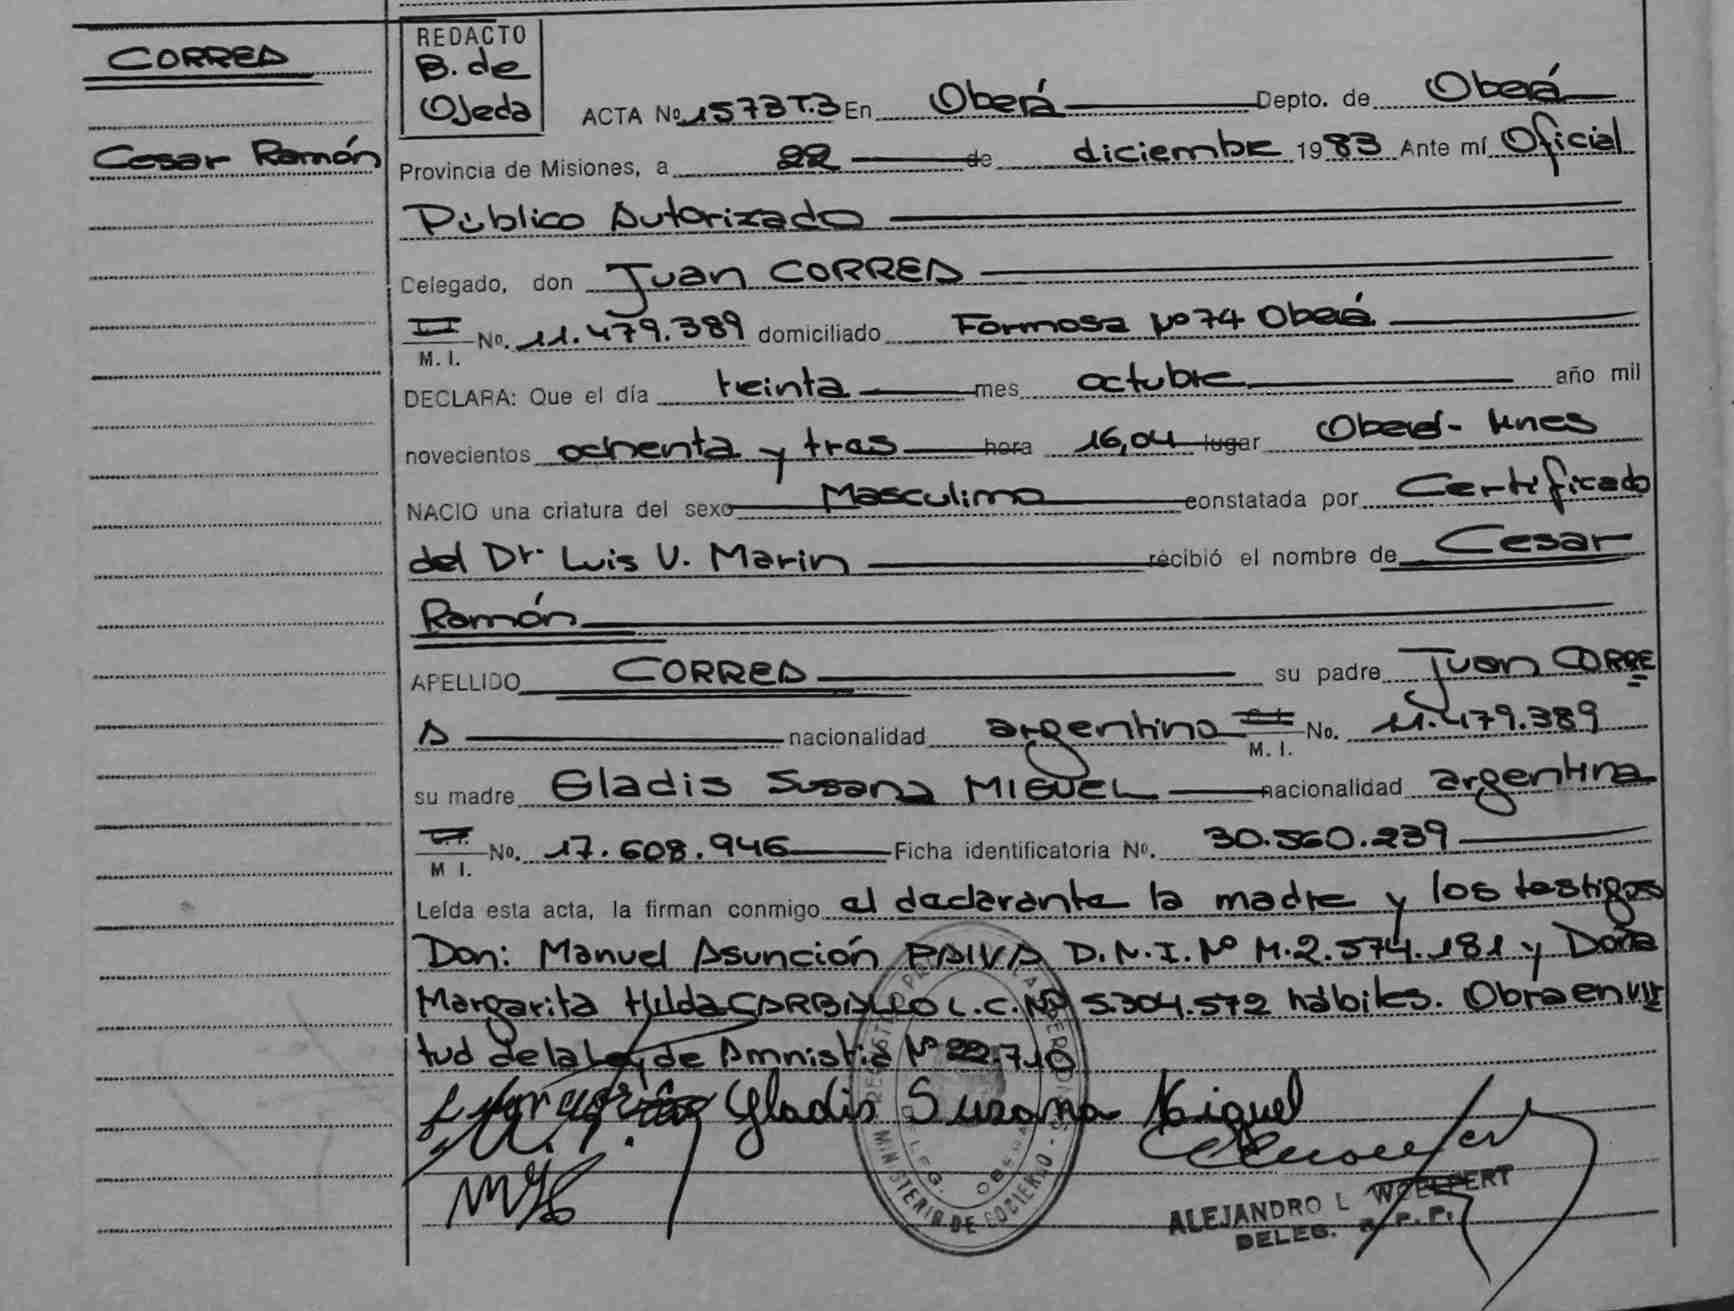 CORREA
Cesar Ramón
REDACTO
B. de
Ojeda
ACTA No. 1573 T.3 En Oberá Depto. de Oberá
Provincia de Misiones, a 22 de diciembre 1983 Ante mí Oficial
Público Autorizado
Delegado, don Juan CORREA
M. I. No. 11.479.389 domiciliado Formosa Nº 74 Oberá
DECLARA: Que el día treinta mes octubre año mil
novecientos ochenta y tres hora 16,04 lugar Oberá - lunes
NACIO una criatura del sexo Masculino constatada por Certificado
del Dr. Luis V. Marin recibió el nombre de Cesar
Ramón
APELLIDO CORREA su padre Juan CORRE
A nacionalidad argentino M. I. No. 11.479.389
su madre Gladis Susana MIGUEL nacionalidad argentina
M I. No. 17.608.946 Ficha identificatoria Nº. 30.560.239
Leída esta acta, la firman conmigo el declarante la madre y los testigos
Don: Manuel Asunción PAIVA D.N.I. Nº M.2.574.181 y Doña
Margarita Hilda CARBALLO L.C. Nº 5.304.572 hábiles. Obra en vir
tud de la Ley de Amnistia Nº 22.710
Gladis Susana Miguel
MINISTERIO DE GOBIERNO
ALEJANDRO L WOELFERT
DELEG. R. P. P.